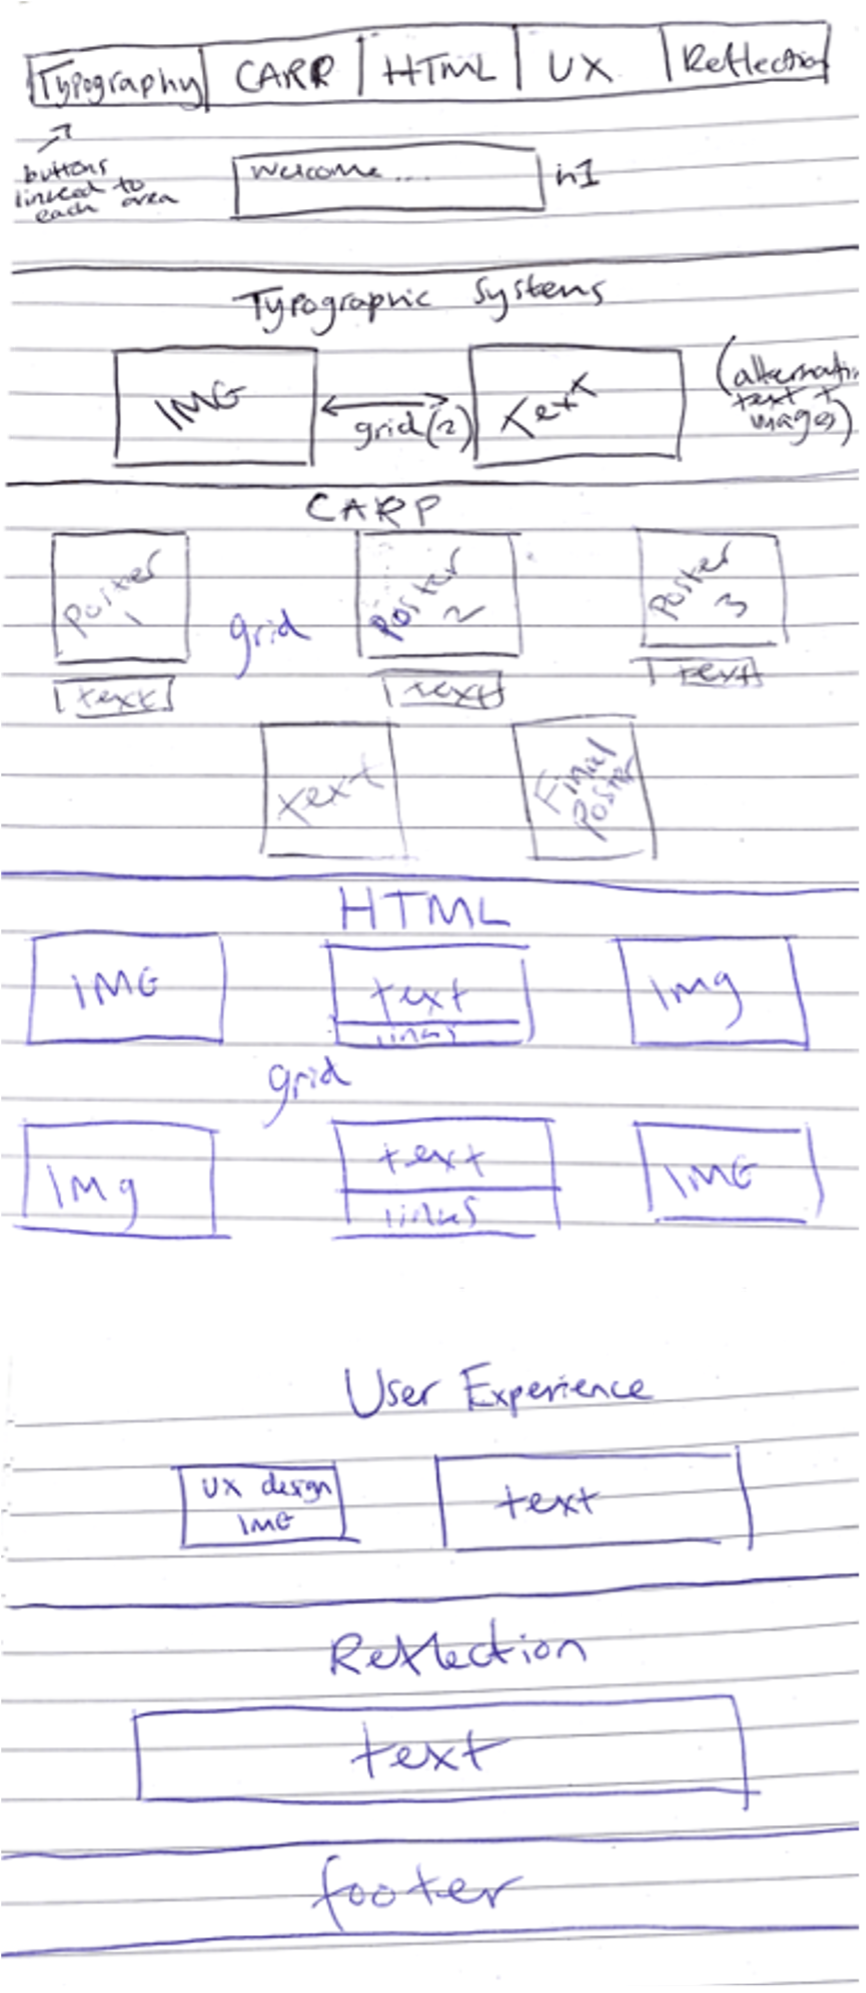 Typography CARP HTML UX Reflection
buttons
linked to
each area
Welcome... h1
Typographic Systems
IMG
grid(2)
text
(alternatin
text +
images)
CARP
Poster
1
grid
Poster
2
Poster
3
text text text
text
Final
Poster
HTML
IMG text Img
links
grid
Img text IMG
links
User Experience
UX design
IMG
text
Reflection
text
footer